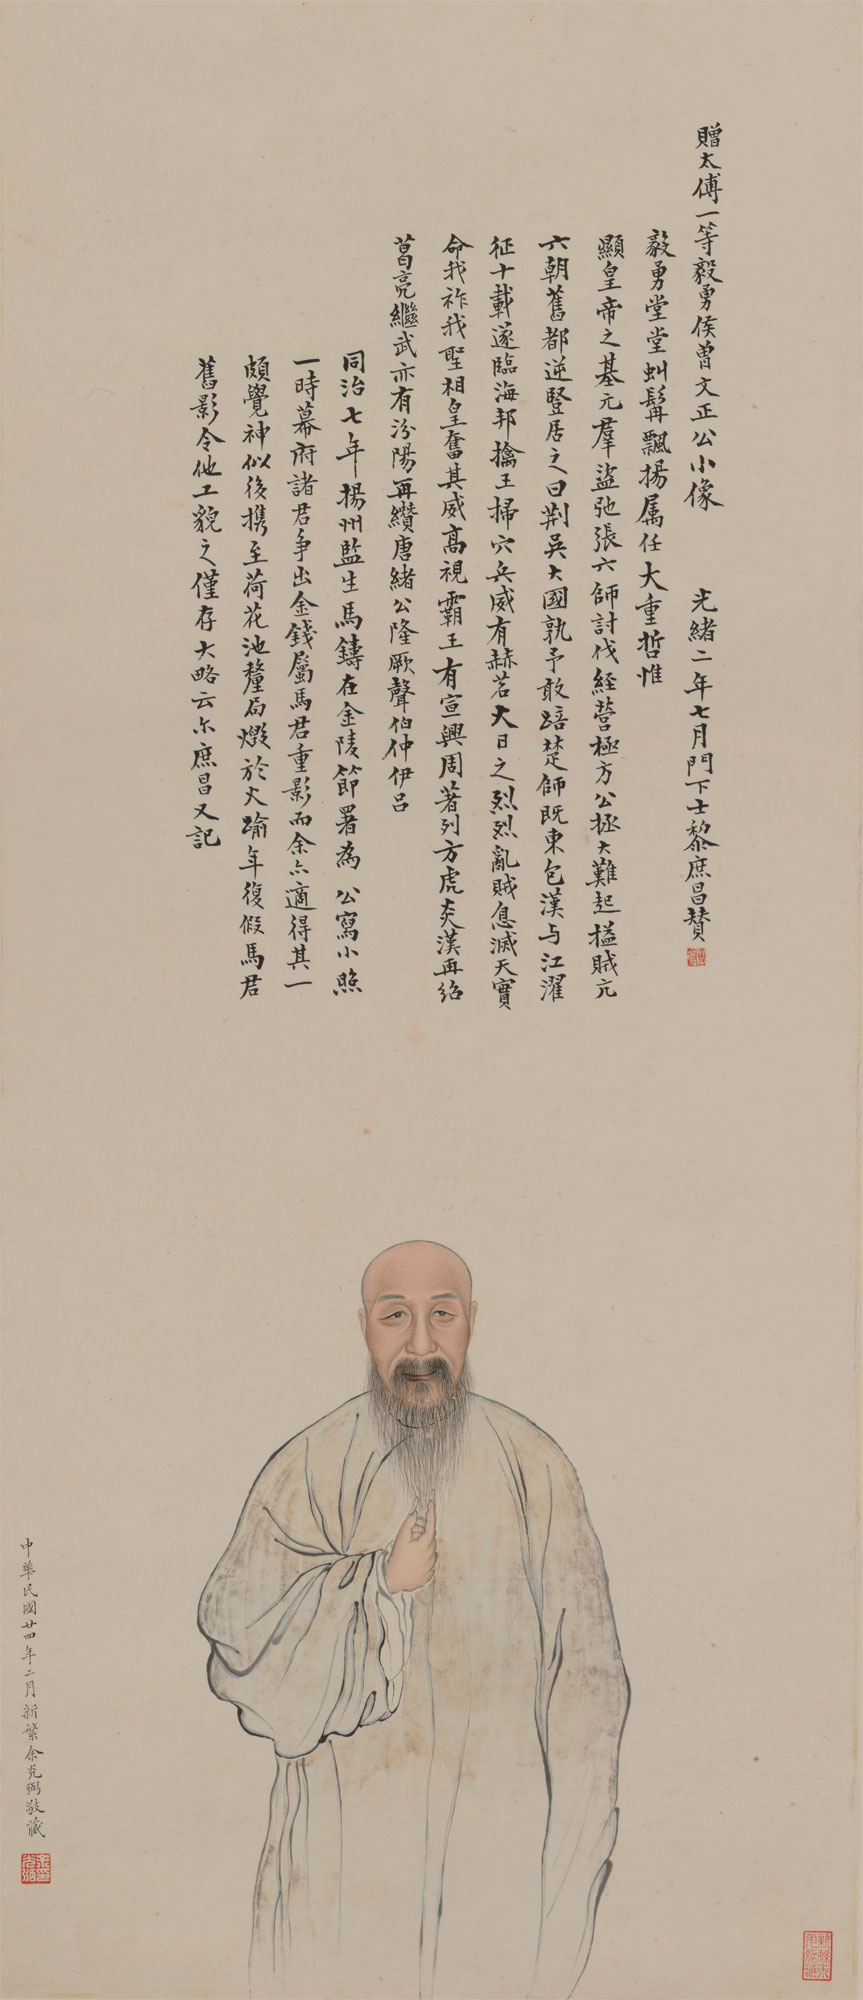 贈太傅一等毅勇侯曾文正公小像　光緒二年七月門下士黎庶昌贊
毅勇堂堂虯髯飄揚属任大重哲惟
顯皇帝之基元羣盜弛張六師討伐経營極方公拯大難起搤賊亢
六朝舊都逆豎居之曰荆吳大國孰予敢踣楚師既東包漢与江濯
征十載遂臨海邦擒王掃穴兵威有赫若大日之烈烈亂賊息滅天實
命我祚我聖相皇奮其威高視霸王有宣興周著列方虎炎漢再紹
葛亮繼武亦有汾陽再纘唐緒公隆厥聲伯仲伊呂
同治七年揚州監生馬鑄在金陵節署為公寫小照
一時幕府諸君争出金錢屬馬君重影而余亦適得其一
頗覺神似後携至荷花池釐局燬於火踰年復假馬君
舊影令他工貌之僅存大略云尒庶昌又記
中華民國廿四年二月新繁余克弼敬藏